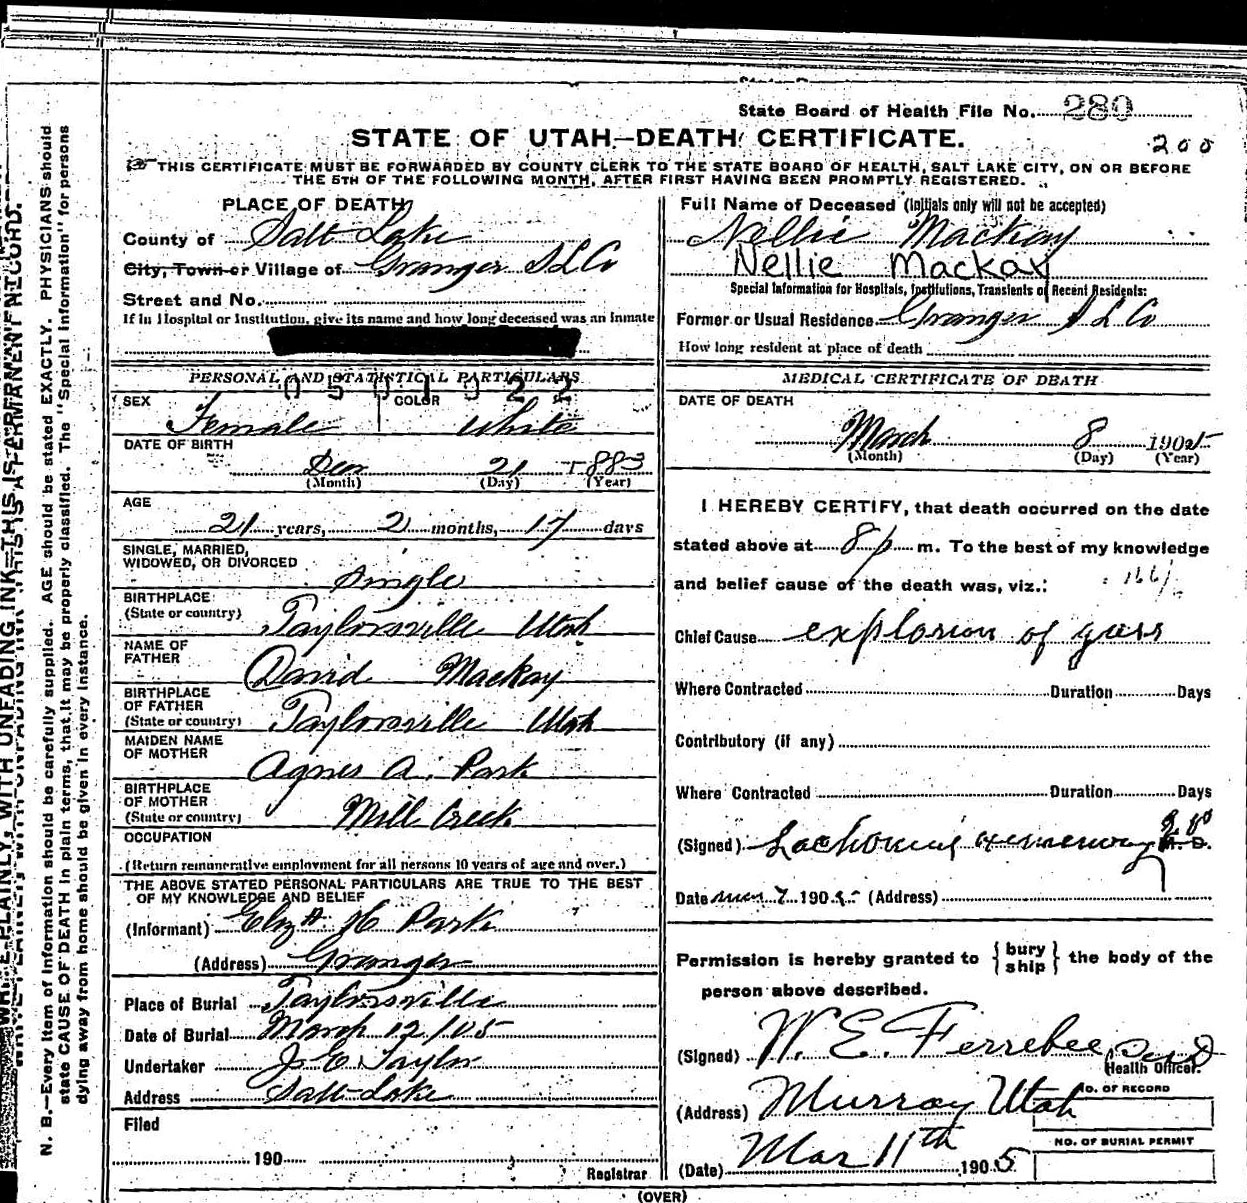 State Board of Health File No. 289
STATE OF UTAH—DEATH CERTIFICATE.
200
THIS CERTIFICATE MUST BE FORWARDED BY COUNTY CLERK TO THE STATE BOARD OF HEALTH, SALT LAKE CITY, ON OR BEFORE
THE 5TH OF THE FOLLOWING MONTH, AFTER FIRST HAVING BEEN PROMPTLY REGISTERED.
N. B.—Every item of information should be carefully supplied. AGE should be stated EXACTLY. PHYSICIANS should
state CAUSE OF DEATH in plain terms, that it may be properly classified. The "Special Information" for persons
dying away from home should be given in every instance.
WRITE PLAINLY, WITH UNFADING INK—THIS IS A PERMANENT RECORD.
PLACE OF DEATH
County of Salt Lake
City, Town or Village of Granger S L Co
Street and No.
If in Hospital or Institution, give its name and how long deceased was an inmate
PERSONAL AND STATISTICAL PARTICULARS
SEX Female
COLOR White
DATE OF BIRTH
21 1883
(Month) (Day) (Year)
AGE
21 years, 2 months, 17 days
SINGLE, MARRIED,
WIDOWED, OR DIVORCED Single
BIRTHPLACE
(State or country) Taylorsville Utah
NAME OF
FATHER David Mackay
BIRTHPLACE
OF FATHER
(State or country) Taylorsville Utah
MAIDEN NAME
OF MOTHER Agnes A. Park
BIRTHPLACE
OF MOTHER
(State or country) Mill Creek
OCCUPATION
(Return remunerative employment for all persons 10 years of age and over.)
THE ABOVE STATED PERSONAL PARTICULARS ARE TRUE TO THE BEST
OF MY KNOWLEDGE AND BELIEF
(Informant) H Park
(Address) Granger
Place of Burial Taylorsville
Date of Burial March 12/05
Undertaker J. E. Taylor
Address Salt Lake
Filed
190
Registrar
Full Name of Deceased (Initials only will not be accepted)
Nellie Mackay
Nellie Mackay
Special Information for Hospitals, Institutions, Transients or Recent Residents:
Former or Usual Residence Granger S L Co
How long resident at place of death
MEDICAL CERTIFICATE OF DEATH
DATE OF DEATH
March 8 1905
(Month) (Day) (Year)
I HEREBY CERTIFY, that death occurred on the date
stated above at 8 p m. To the best of my knowledge
and belief cause of the death was, viz.:
166
Chief Cause explosion of gass
Where Contracted Duration Days
Contributory (if any)
Where Contracted Duration Days
(Signed) M. D.
Date 7 1905 (Address)
Permission is hereby granted to {bury ship} the body of the
person above described.
(Signed) W. E. Ferrebee
Health Officer.
(Address) Murray Utah
NO. OF RECORD
(Date) Mar 11th 1905
NO. OF BURIAL PERMIT
(OVER)